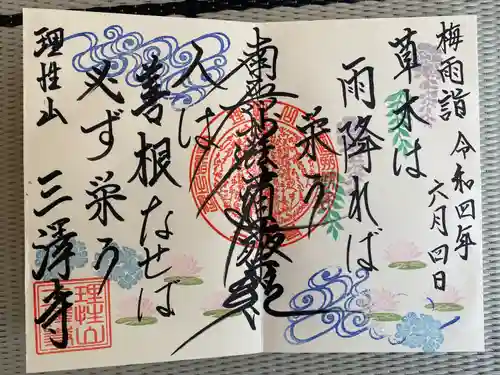 梅雨詣 令和四年
六月四日
草木は
雨降れば
栄う
南無妙法蓮華経
人は
善根なせば
必ず栄う
理性山
三澤寺